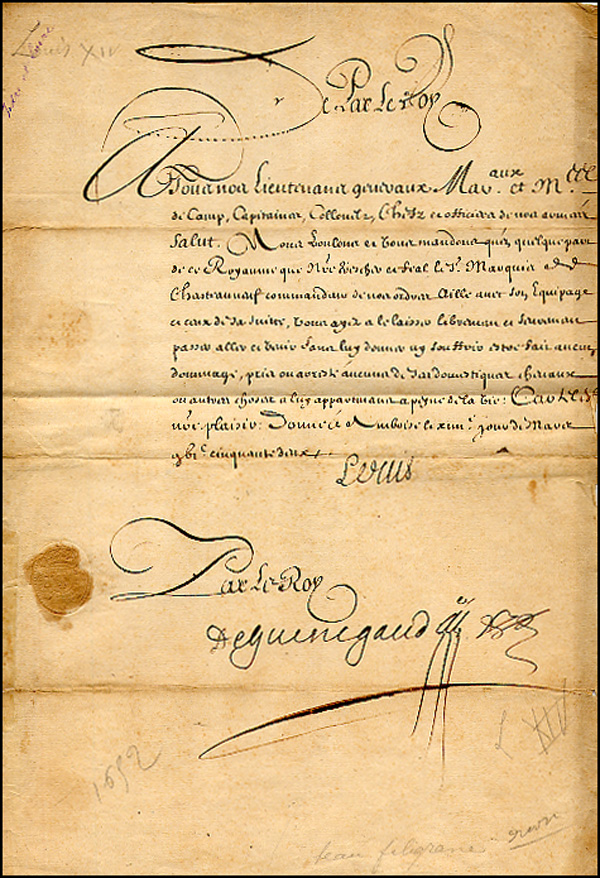 Louis XIV
De Par Le Roy
A Tous nos Lieutenans generaux Mar.aux et M.es
de Camp, Capitaines, Collonelz, Chefz et officiers de nos armées
Salut. Nous Voulons et vous mandons qu'en quelque part
de ce Royaume que Nre tres cher et feal le Sr. Marquis de
Chasteauneuf commandeur de nos ordres Aille avec son Equipage
et ceux de sa suitte, vous ayez a le laisser librement et seurement
passer aller et venir sans luy donner ny souffrir estre fait aucun
dommage, pris ou aresté aucuns de ses domestiques chevaux
ou autres choses a luy appartenans a peyne de la vie: Car tel est
nre plaisir: Donné à Amboise le xiiiie. jour de Mars
gbic. cinquante deux.
Louis
Par Le Roy
DeGuenegaud
L XIV
1652
beau filigrane